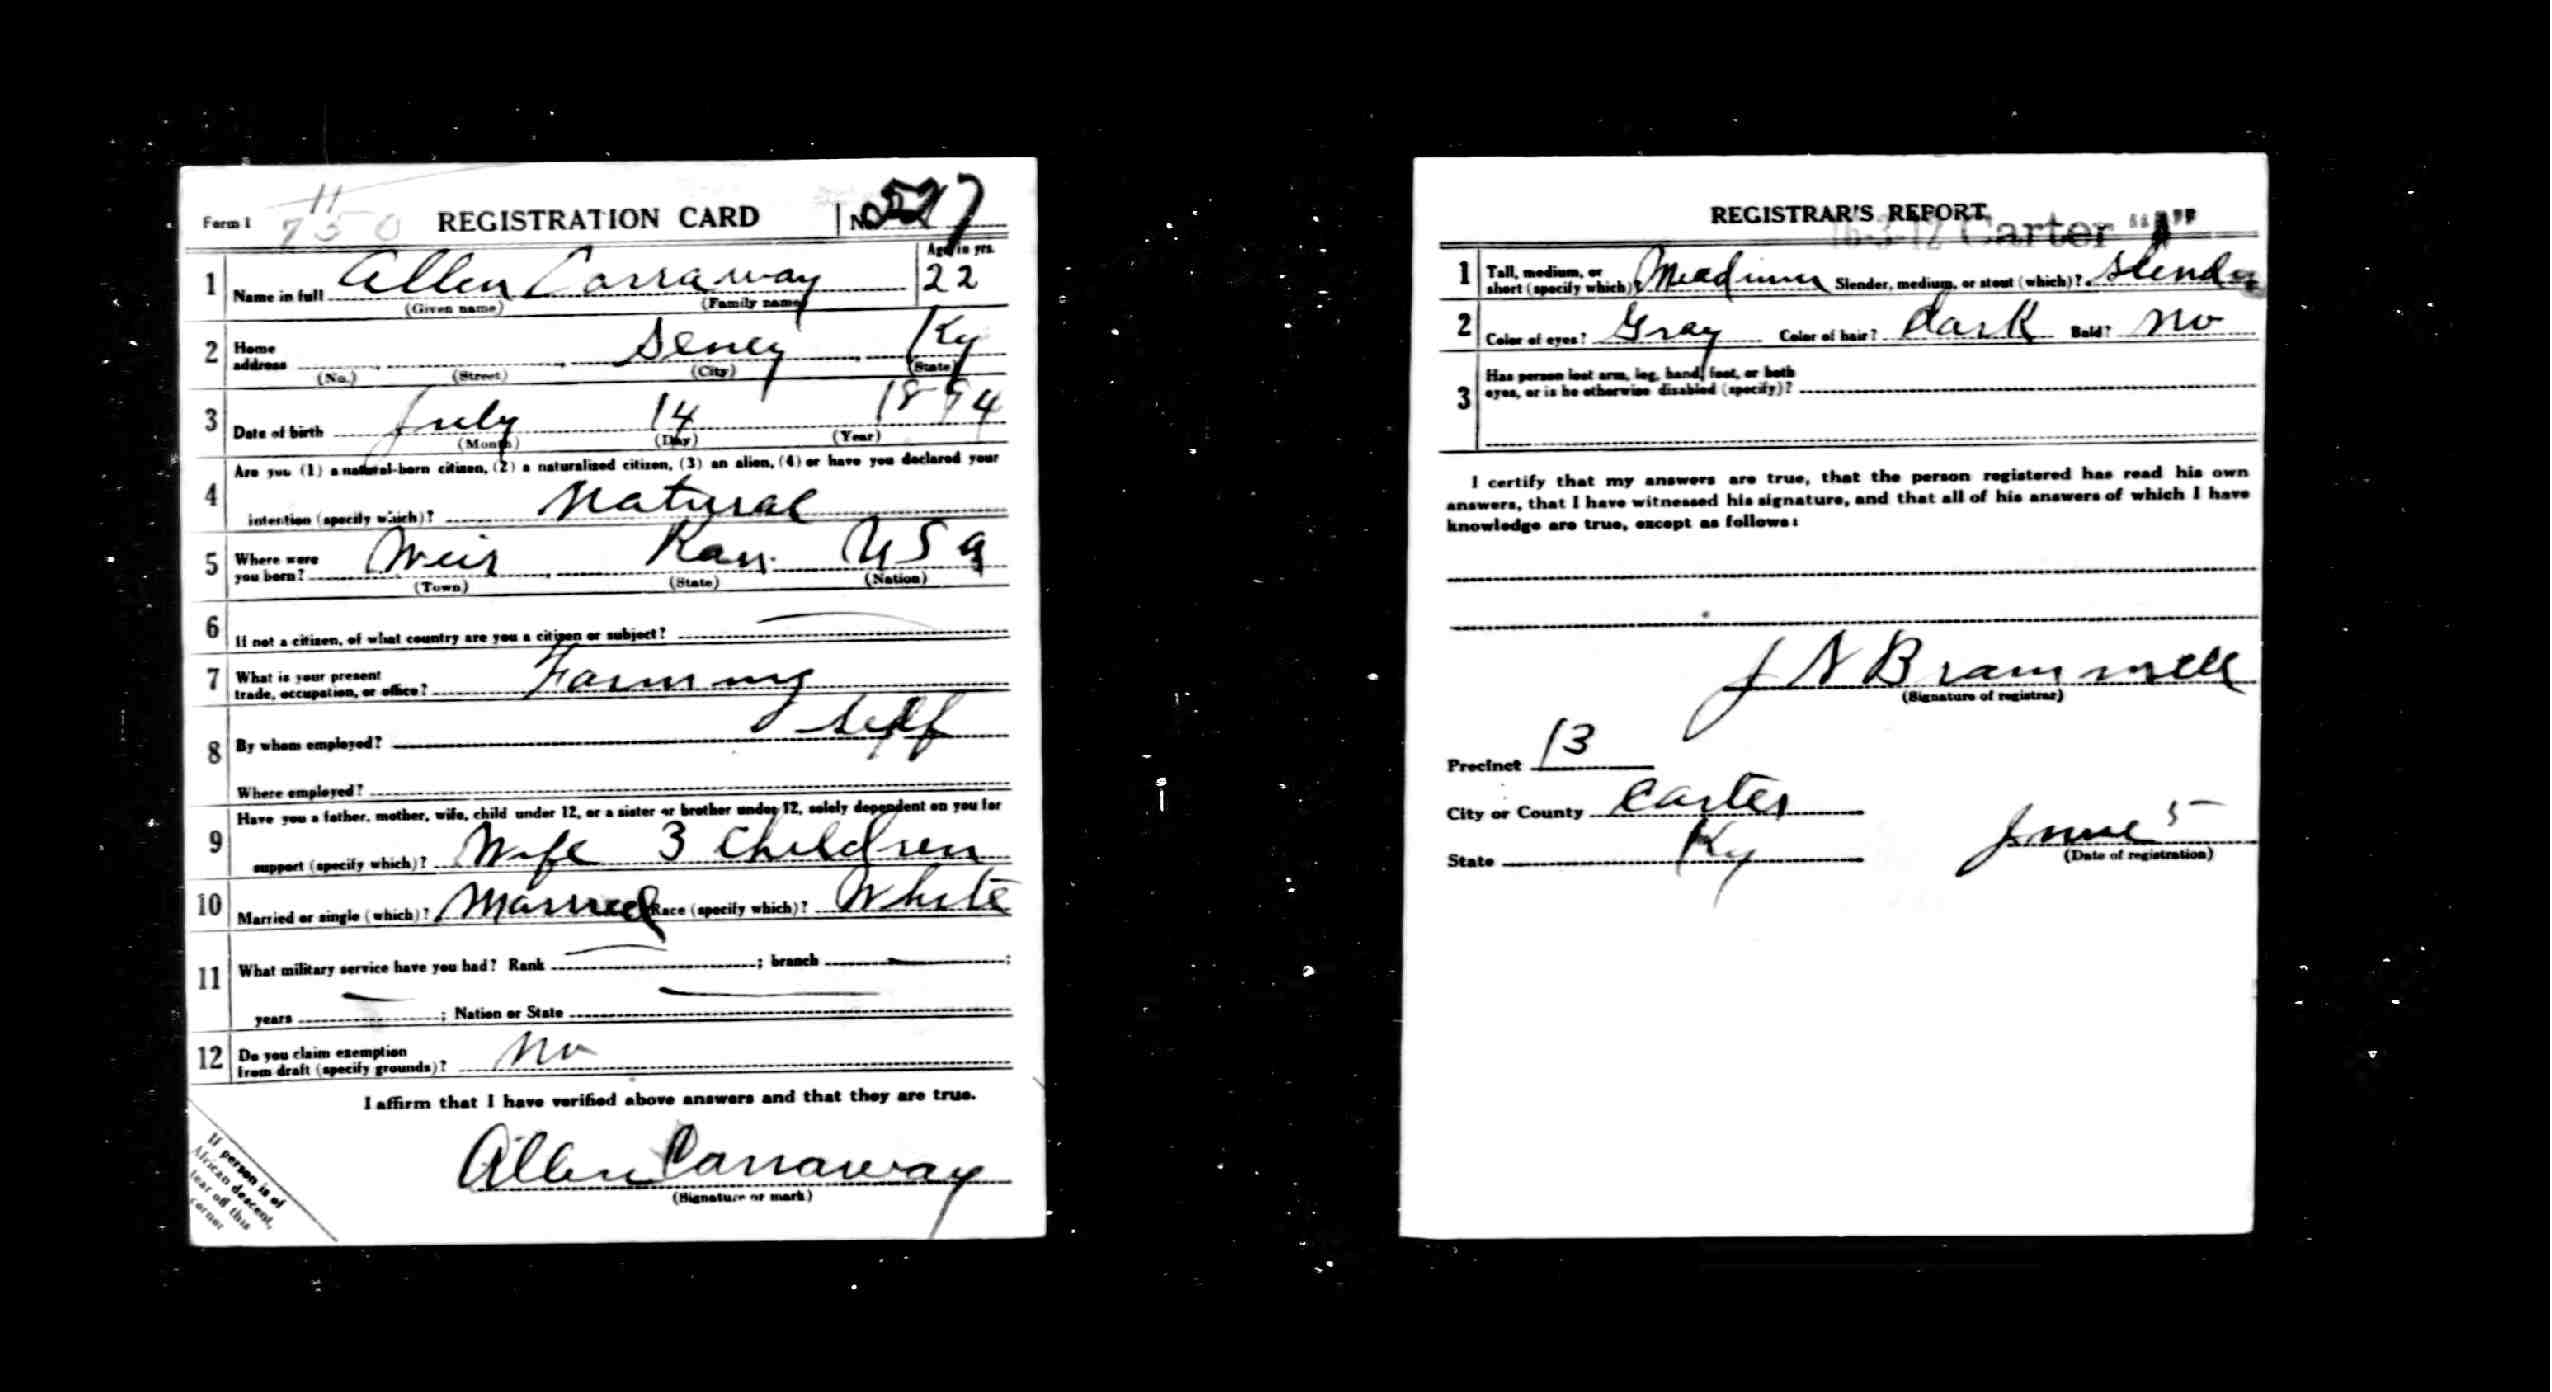 Form 1
11
750
REGISTRATION CARD
No. 7
1 Name in full Allen Carraway Age, in yrs. 22
(Given name) (Family name)
2 Home address Seney Ky
(No.) (Street) (City) (State)
3 Date of birth July 14 1894
(Month) (Day) (Year)
4 Are you (1) a natural-born citizen, (2) a naturalized citizen, (3) an alien, (4) or have you declared your
intention (specify which)? Natural
5 Where were you born? Weir Kan. USA
(Town) (State) (Nation)
6 If not a citizen, of what country are you a citizen or subject?
7 What is your present trade, occupation, or office? Farming
8 By whom employed? Self
Where employed?
9 Have you a father, mother, wife, child under 12, or a sister or brother under 12, solely dependent on you for
support (specify which)? Wife 3 Children
10 Married or single (which)? Married Race (specify which)? White
11 What military service have you had? Rank ; branch ;
years ; Nation or State
12 Do you claim exemption from draft (specify grounds)? No
I affirm that I have verified above answers and that they are true.
Allen Carraway
(Signature or mark)
If person is of
African descent,
tear off this
corner
REGISTRAR'S REPORT
16-3-12 Carter "A"
1 Tall, medium, or short (specify which)? Meadium Slender, medium, or stout (which)? Slender
2 Color of eyes? Gray Color of hair? dark Bald? No
3 Has person lost arm, leg, hand, foot, or both
eyes, or is he otherwise disabled (specify)?
I certify that my answers are true, that the person registered has read his own
answers, that I have witnessed his signature, and that all of his answers of which I have
knowledge are true, except as follows:
J N Brammell
(Signature of registrar)
Precinct 13
City or County Carter
State Ky
June 5
(Date of registration)